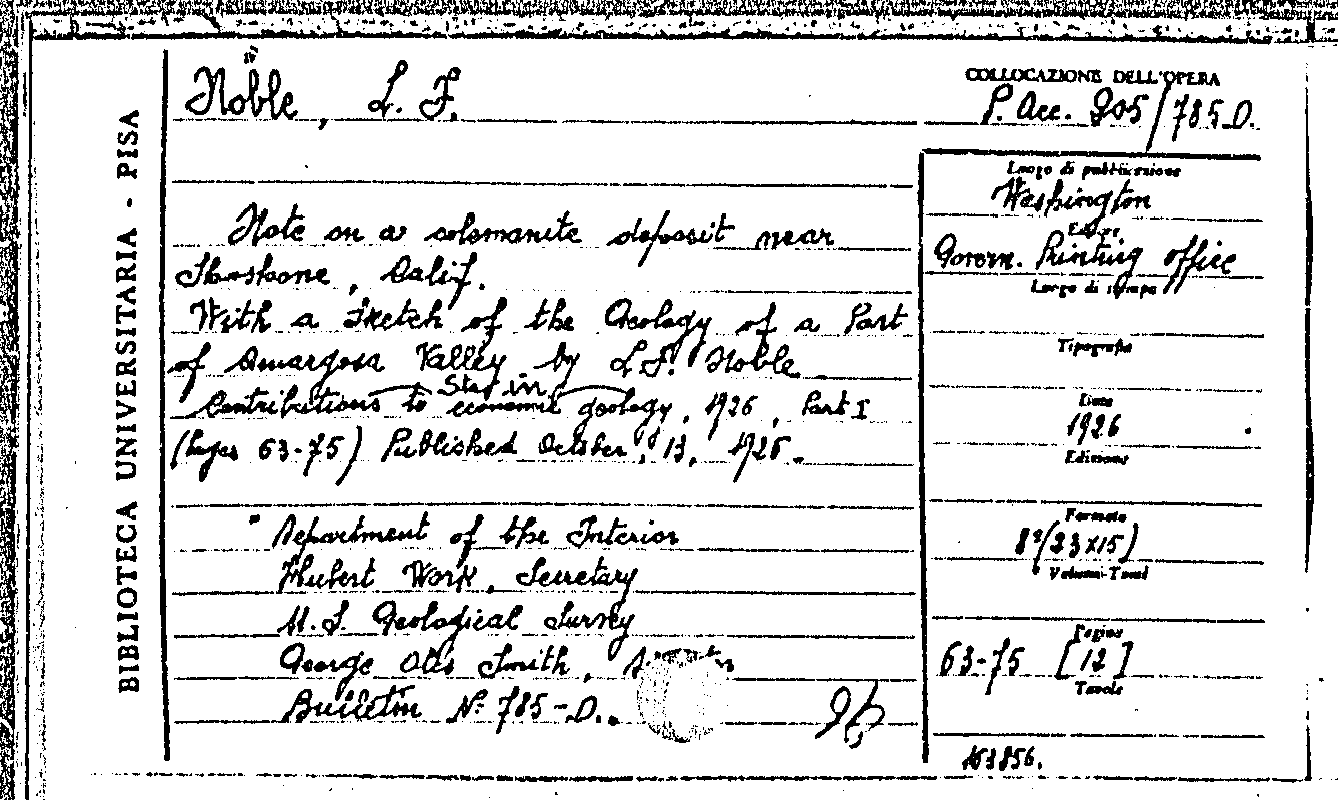 BIBLIOTECA UNIVERSITARIA - PISA
Noble, L. F.
Note on a colemanite deposit near
Shoshone, Calif.
With a Sketch of the Geology of a Part
of Amargosa Valley by L.F. Noble
Sta in
Contributions to economic geology, 1926, Part I
(Pages 63-75) Published October, 13, 1926.
Department of the Interior
Hubert Work, Secretary
U.S. Geological Survey
George Otis Smith,
Bulletin Nº 785-D.
COLLOCAZIONE DELL'OPERA
P. Acc. 205/785D.
Luogo di pubblicazione
Washington
Editore
Govern. Printing office
Luogo di stampa
Tipografia
Data
1926
Edizione
Formato
8º(23x15)
Volumi-Tomi
Pagine
63-75 [12]
Tavole
163856.